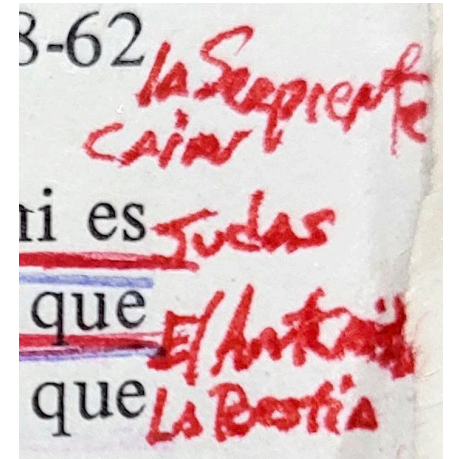 8-62
la Serpiente
CAin
ni es Judas
que El Anticristo
que La Bestia